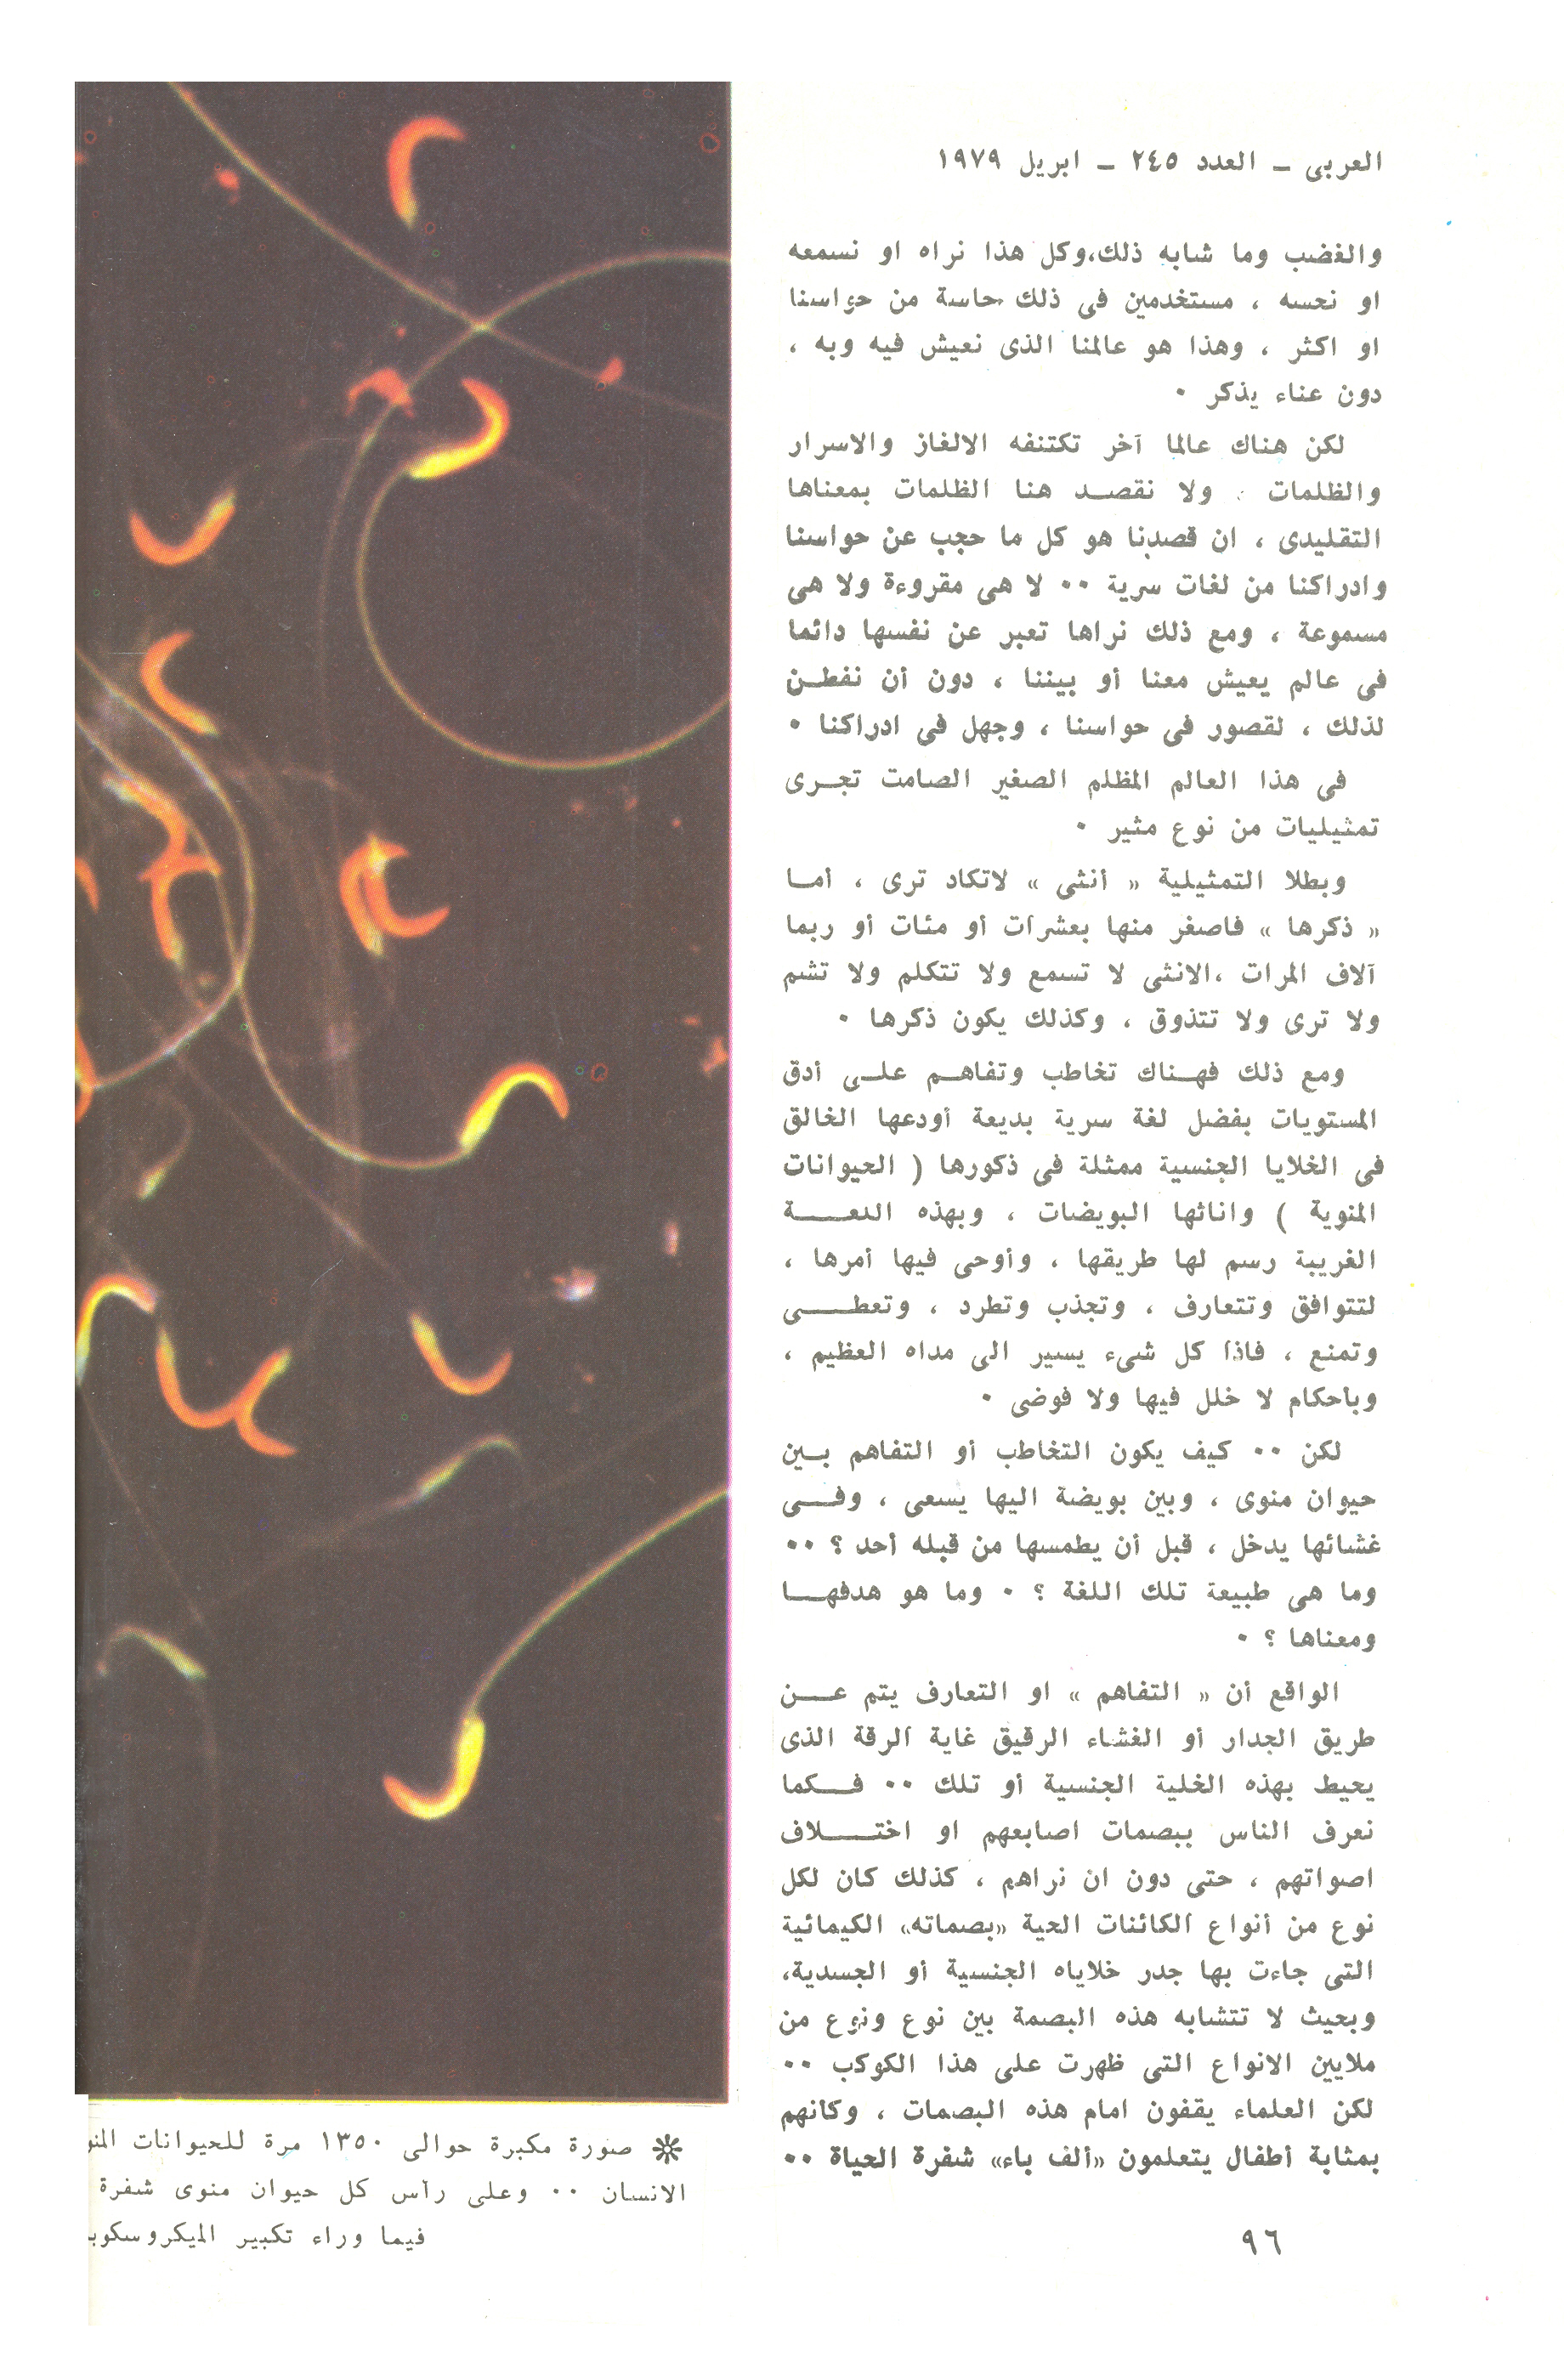 العربى - العدد ٢٤٥ - ابريل ١٩٧٩
والغضب وما شابه ذلك،وكل هذا نراه او نسمعه
او نحسه ، مستخدمين فى ذلك حاسة من حواسنا
او اكثر ، وهذا هو عالمنا الذى نعيش فيه وبه ،
دون عناء يذكر ٠
لكن هناك عالما آخر تكتنفه الالغاز والاسرار
والظلمات . ولا نقصد هنا الظلمات بمعناها
التقليدى ، ان قصدنا هو كل ما حجب عن حواسنا
وادراكنا من لغات سرية ٠٠ لا هى مقروءة ولا هى
مسموعة ، ومع ذلك نراها تعبر عن نفسها دائما
فى عالم يعيش معنا أو بيننا ، دون أن نفطن
لذلك ، لقصور فى حواسنا ، وجهل فى ادراكنا ٠
فى هذا العالم المظلم الصغير الصامت تجرى
تمثيليات من نوع مثير ٠
وبطلا التمثيلية « أنثى » لاتكاد ترى ، أما
« ذكرها » فاصغر منها بعشرات أو مئات أو ربما
آلاف المرات ،الانثى لا تسمع ولا تتكلم ولا تشم
ولا ترى ولا تتذوق ، وكذلك يكون ذكرها ٠
ومع ذلك فهناك تخاطب وتفاهم على أدق
المستويات بفضل لغة سرية بديعة أودعها الخالق
فى الخلايا الجنسية ممثلة فى ذكورها ( الحيوانات
المنوية ) واناثها البويضات ، وبهذه اللغة
الغريبة رسم لها طريقها ، وأوحى فيها أمرها ،
لتتوافق وتتعارف ، وتجذب وتطرد ، وتعطى
وتمنع ، فاذا كل شىء يسير الى مداه العظيم ،
وباحكام لا خلل فيها ولا فوضى ٠
لكن ٠٠ كيف يكون التخاطب أو التفاهم بين
حيوان منوى ، وبين بويضة اليها يسعى ، وفى
غشائها يدخل ، قبل أن يطمسها من قبله أحد ؟ ٠٠
وما هى طبيعة تلك اللغة ؟ ٠ وما هو هدفها
ومعناها ؟ ٠
الواقع أن « التفاهم » او التعارف يتم عن
طريق الجدار أو الغشاء الرقيق غاية الرقة الذى
يحيط بهذه الخلية الجنسية أو تلك ٠٠ فكما
نعرف الناس ببصمات اصابعهم او اختلاف
اصواتهم ، حتى دون ان نراهم ، كذلك كان لكل
نوع من أنواع الكائنات الحية «بصماته» الكيمائية
التى جاءت بها جدر خلاياه الجنسية أو الجسدية،
وبحيث لا تتشابه هذه البصمة بين نوع ونوع من
ملايين الانواع التى ظهرت على هذا الكوكب ٠٠
لكن العلماء يقفون امام هذه البصمات ، وكانهم
بمثابة أطفال يتعلمون «ألف باء» شفرة الحياة ٠٠
صورة مكبرة حوالى ١٣٥٠ مرة للحيوانات المنو
الانسان ٠٠ وعلى رأس كل حيوان منوى شفرة
فيما وراء تكبير الميكروسكوب
٩٦